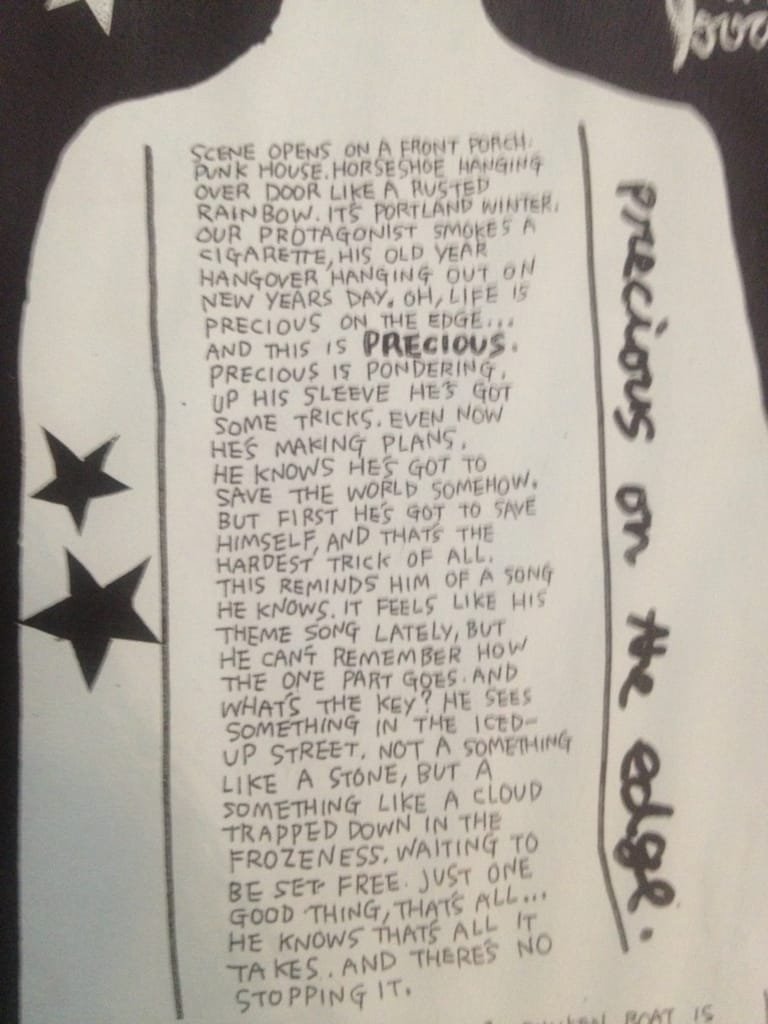 love
SCENE OPENS ON A FRONT PORCH.
PUNK HOUSE. HORSESHOE HANGING
OVER DOOR LIKE A RUSTED
RAINBOW. IT'S PORTLAND WINTER.
OUR PROTAGONIST SMOKES A
CIGARETTE, HIS OLD YEAR
HANGOVER HANGING OUT ON
NEW YEARS DAY. OH, LIFE IS
PRECIOUS ON THE EDGE...
AND THIS IS PRECIOUS.
PRECIOUS IS PONDERING.
UP HIS SLEEVE HE'S GOT
SOME TRICKS. EVEN NOW
HE'S MAKING PLANS.
HE KNOWS HE'S GOT TO
SAVE THE WORLD SOMEHOW.
BUT FIRST HE'S GOT TO SAVE
HIMSELF, AND THAT'S THE
HARDEST TRICK OF ALL.
THIS REMINDS HIM OF A SONG
HE KNOWS. IT FEELS LIKE HIS
THEME SONG LATELY, BUT
HE CAN'T REMEMBER HOW
THE ONE PART GOES. AND
WHAT'S THE KEY? HE SEES
SOMETHING IN THE ICED-
UP STREET. NOT A SOMETHING
LIKE A STONE, BUT A
SOMETHING LIKE A CLOUD
TRAPPED DOWN IN THE
FROZENESS. WAITING TO
BE SET FREE. JUST ONE
GOOD THING, THAT'S ALL...
HE KNOWS THAT'S ALL IT
TAKES. AND THERE'S NO
STOPPING IT.
precious on the edge.
BOAT IS